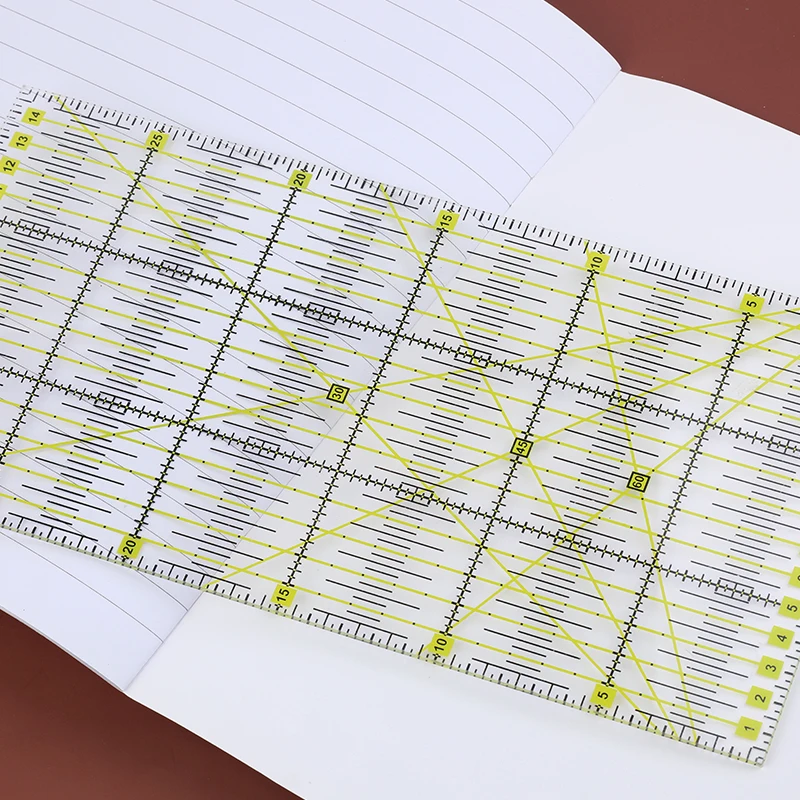 14
13
12
25
20
15
10
5
30
45
60
20
15
10
5
5
4
3
2
1